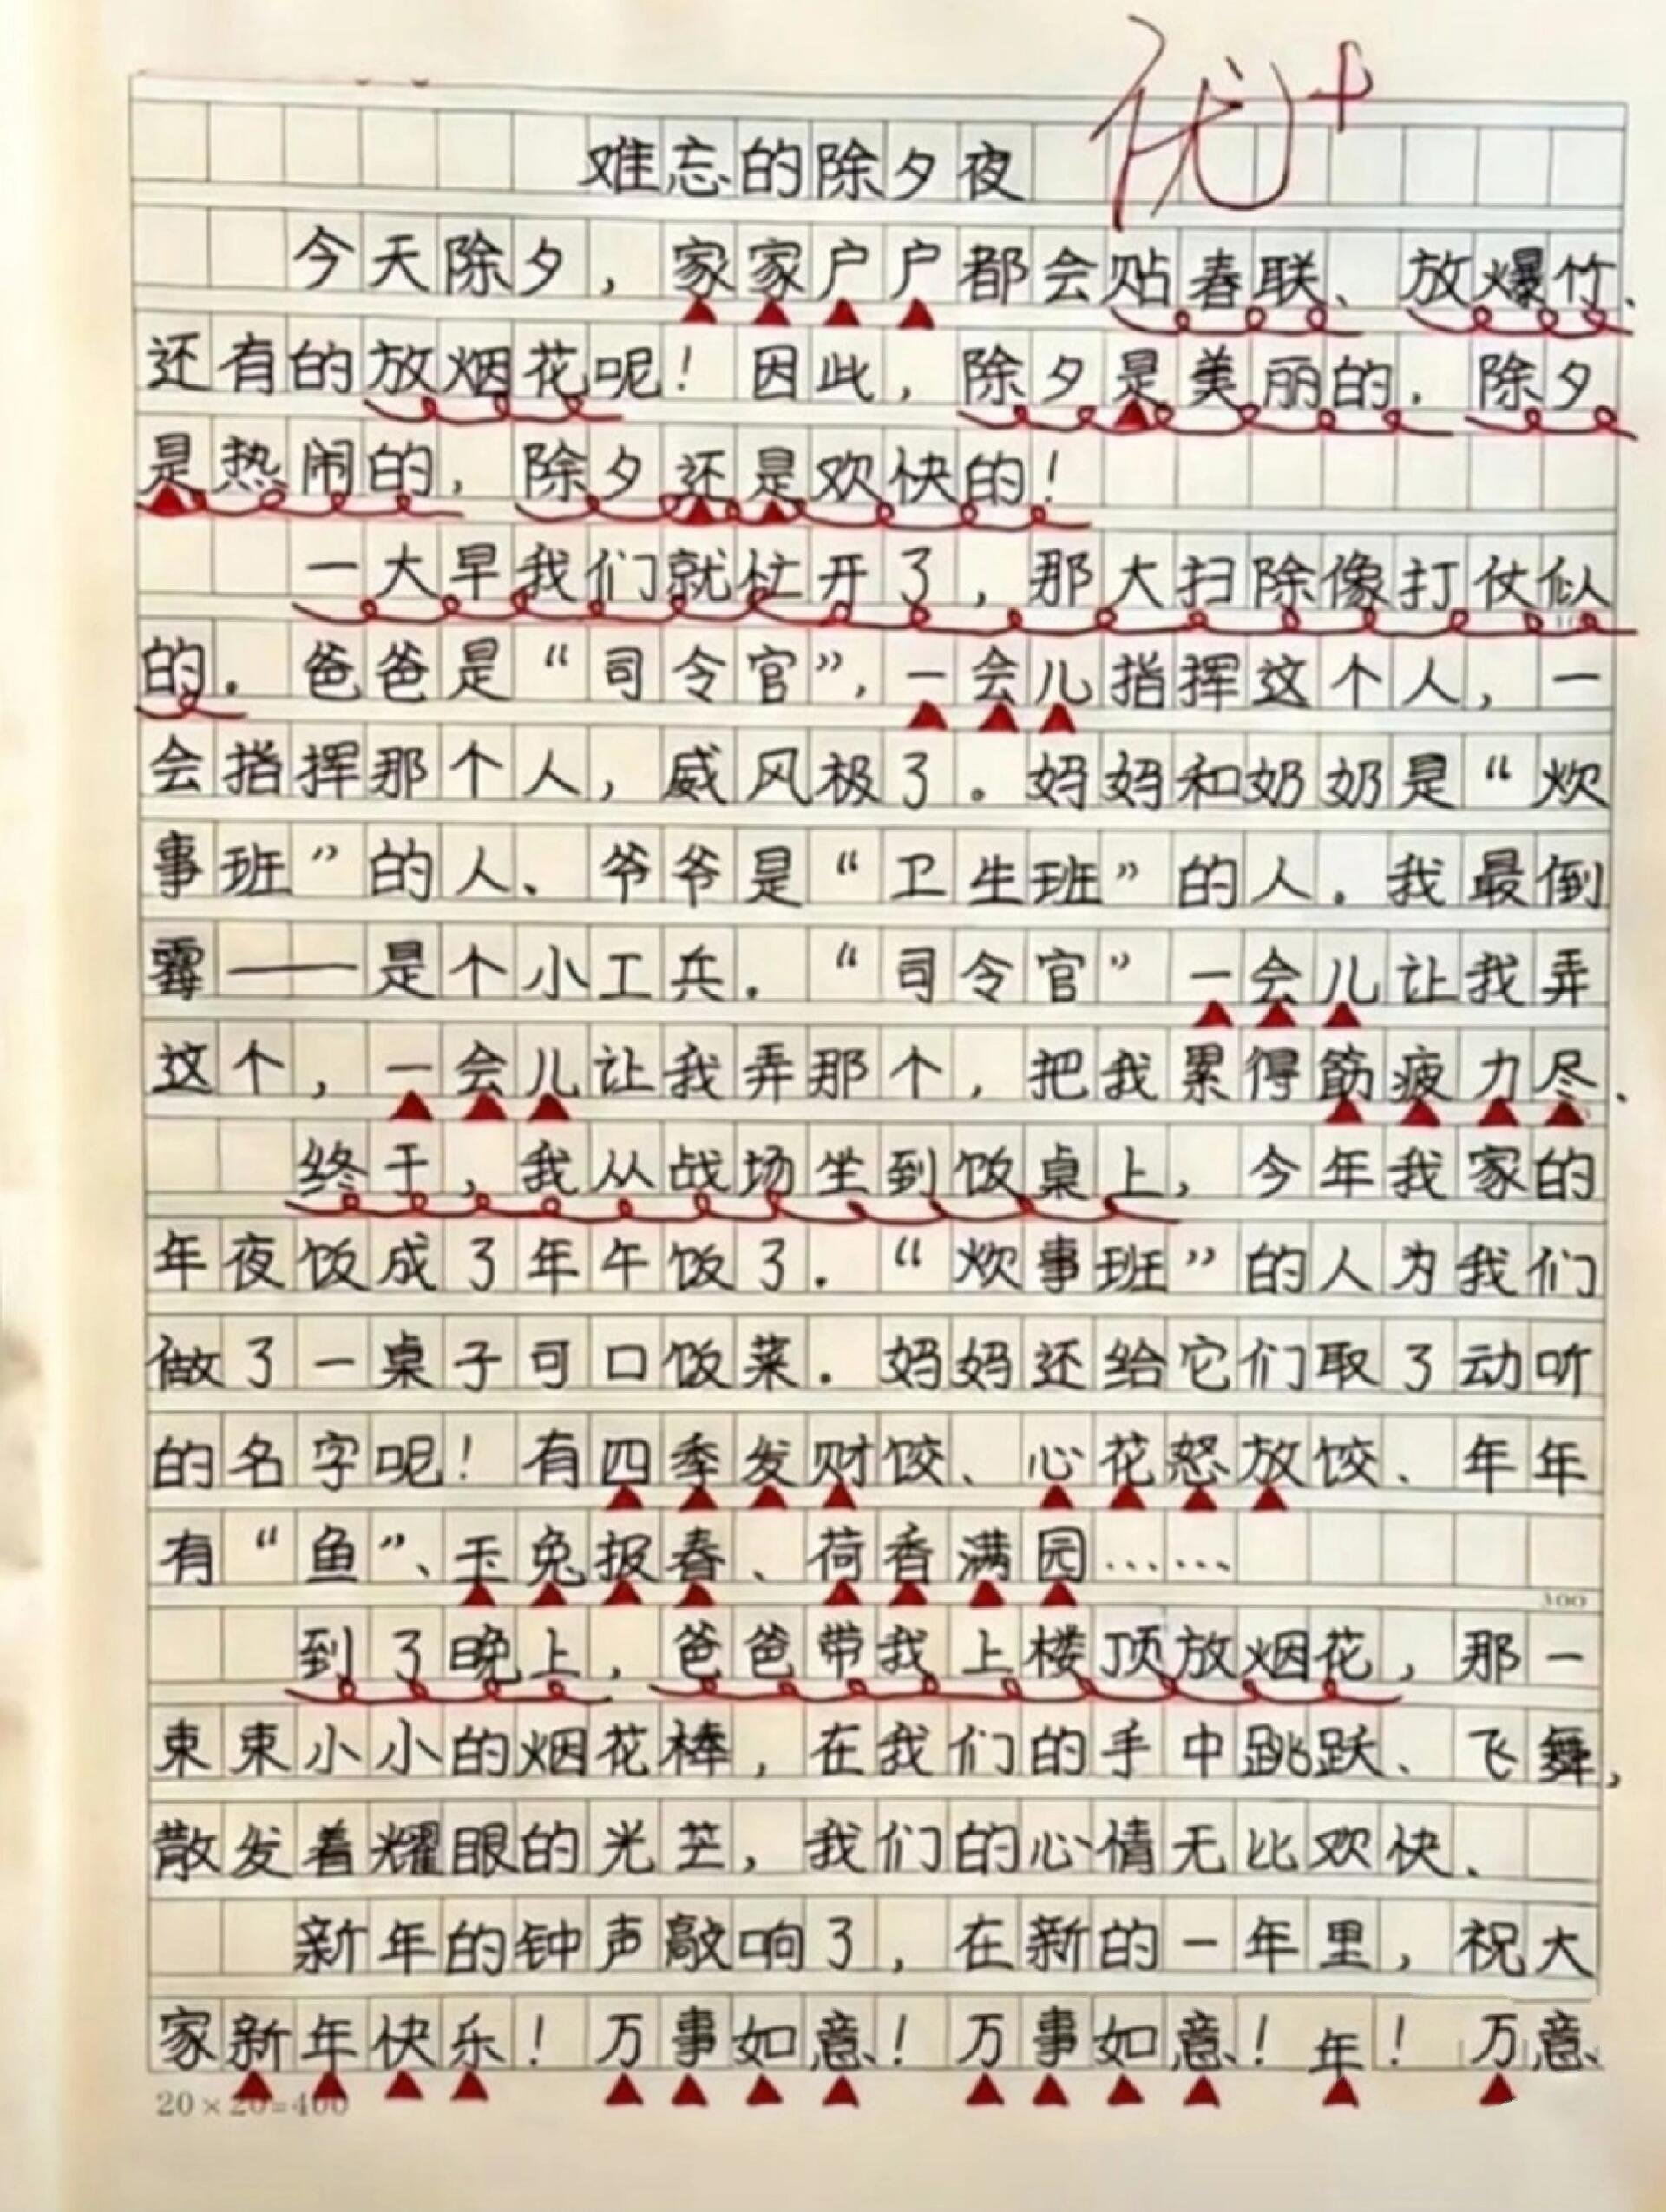 优+
难忘的除夕夜
今天除夕，家家户户都会贴春联、放爆竹、
还有的放烟花呢！因此，除夕是美丽的，除夕
是热闹的，除夕还是欢快的！
一大早我们就忙开了，那大扫除像打仗似
的。爸爸是“司令官”，一会儿指挥这个人，一
会指挥那个人，威风极了。妈妈和奶奶是“炊
事班”的人、爷爷是“卫生班”的人。我最倒
霉——是个小工兵。“司令官”一会儿让我弄
这个，一会儿让我弄那个，把我累得筋疲力尽、
终于，我从战场坐到饭桌上，今年我家的
年夜饭成了年午饭了。“炊事班”的人为我们
做了一桌子可口饭菜。妈妈还给它们取了动听
的名字呢！有四季发财饺、心花怒放饺、年年
有“鱼”、玉兔报春、荷香满园……
300
到了晚上，爸爸带我上楼顶放烟花，那一
束束小小的烟花棒，在我们的手中跳跃、飞舞，
散发着耀眼的光芒，我们的心情无比欢快、
新年的钟声敲响了，在新的一年里，祝大
家新年快乐！万事如意！万事如意！年！万意、
20×20=400